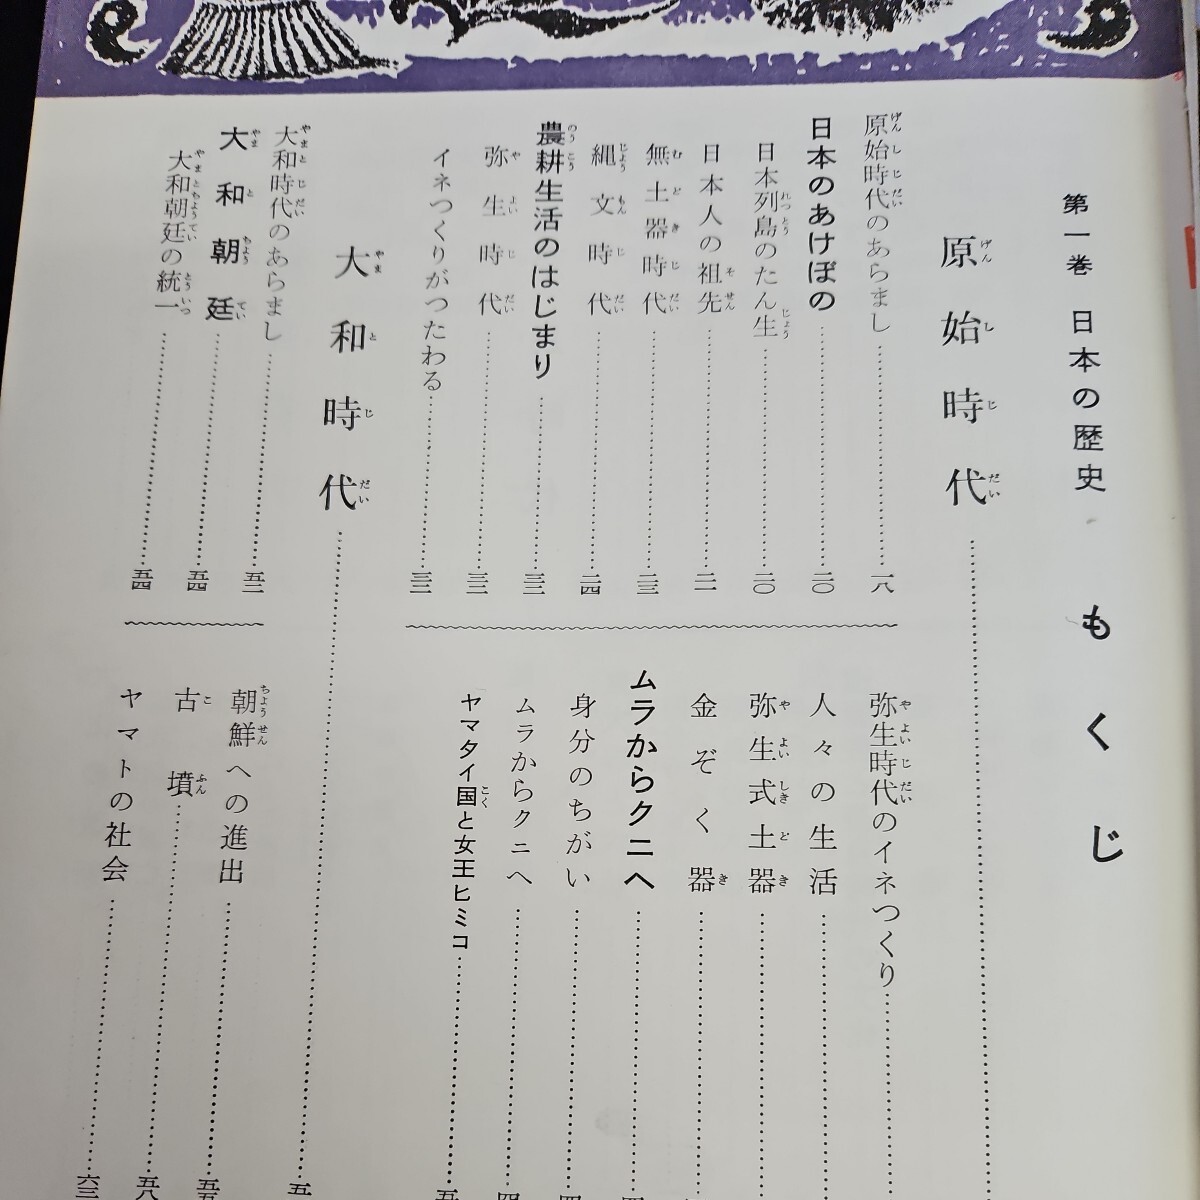 第一巻 日本の歴史 もくじ
原始時代
原始時代のあらまし 一八
日本のあけぼの 二〇
日本列島のたん生 二〇
日本人の祖先 二一
無土器時代 二三
縄文時代 二四
農耕生活のはじまり
弥生時代
イネつくりがつたわる
弥生時代のイネつくり
人々の生活
弥生式土器
金ぞく器
ムラからクニへ
身分のちがい
ムラからクニへ
ヤマタイ国と女王ヒミコ
大和時代
大和時代のあらまし 五二
大和朝廷 五四
大和朝廷の統一 五四
朝鮮への進出 五五
古墳 五八
ヤマトの社会 六三